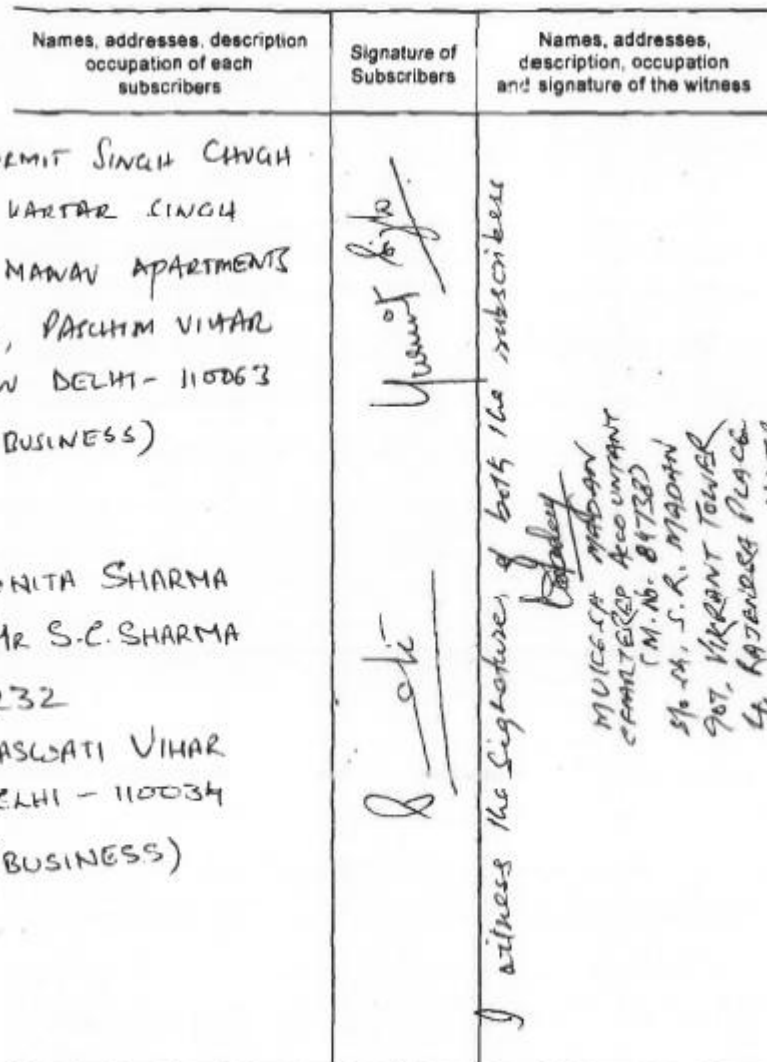 Names, addresses, description
occupation of each
subscribers
Signature of
Subscribers
Names, addresses,
description, occupation
and signature of the witness
RMIT SINGH CHUGH
KARTAR SINGH
MANAV APARTMENTS
, PASCHIM VIHAR
W DELHI - 110063
BUSINESS)
NITA SHARMA
MR S.C. SHARMA
232
ASWATI VIHAR
ELHI - 110034
BUSINESS)
I witness the Signature, of both the subscribers
MUKESH MADAN
CHARTERED ACCOUNTANT
(M. No. 84738)
S/o Sh. S. R. MADAN
907, VIKRANT TOWER
4, RAJENDRA PLACE